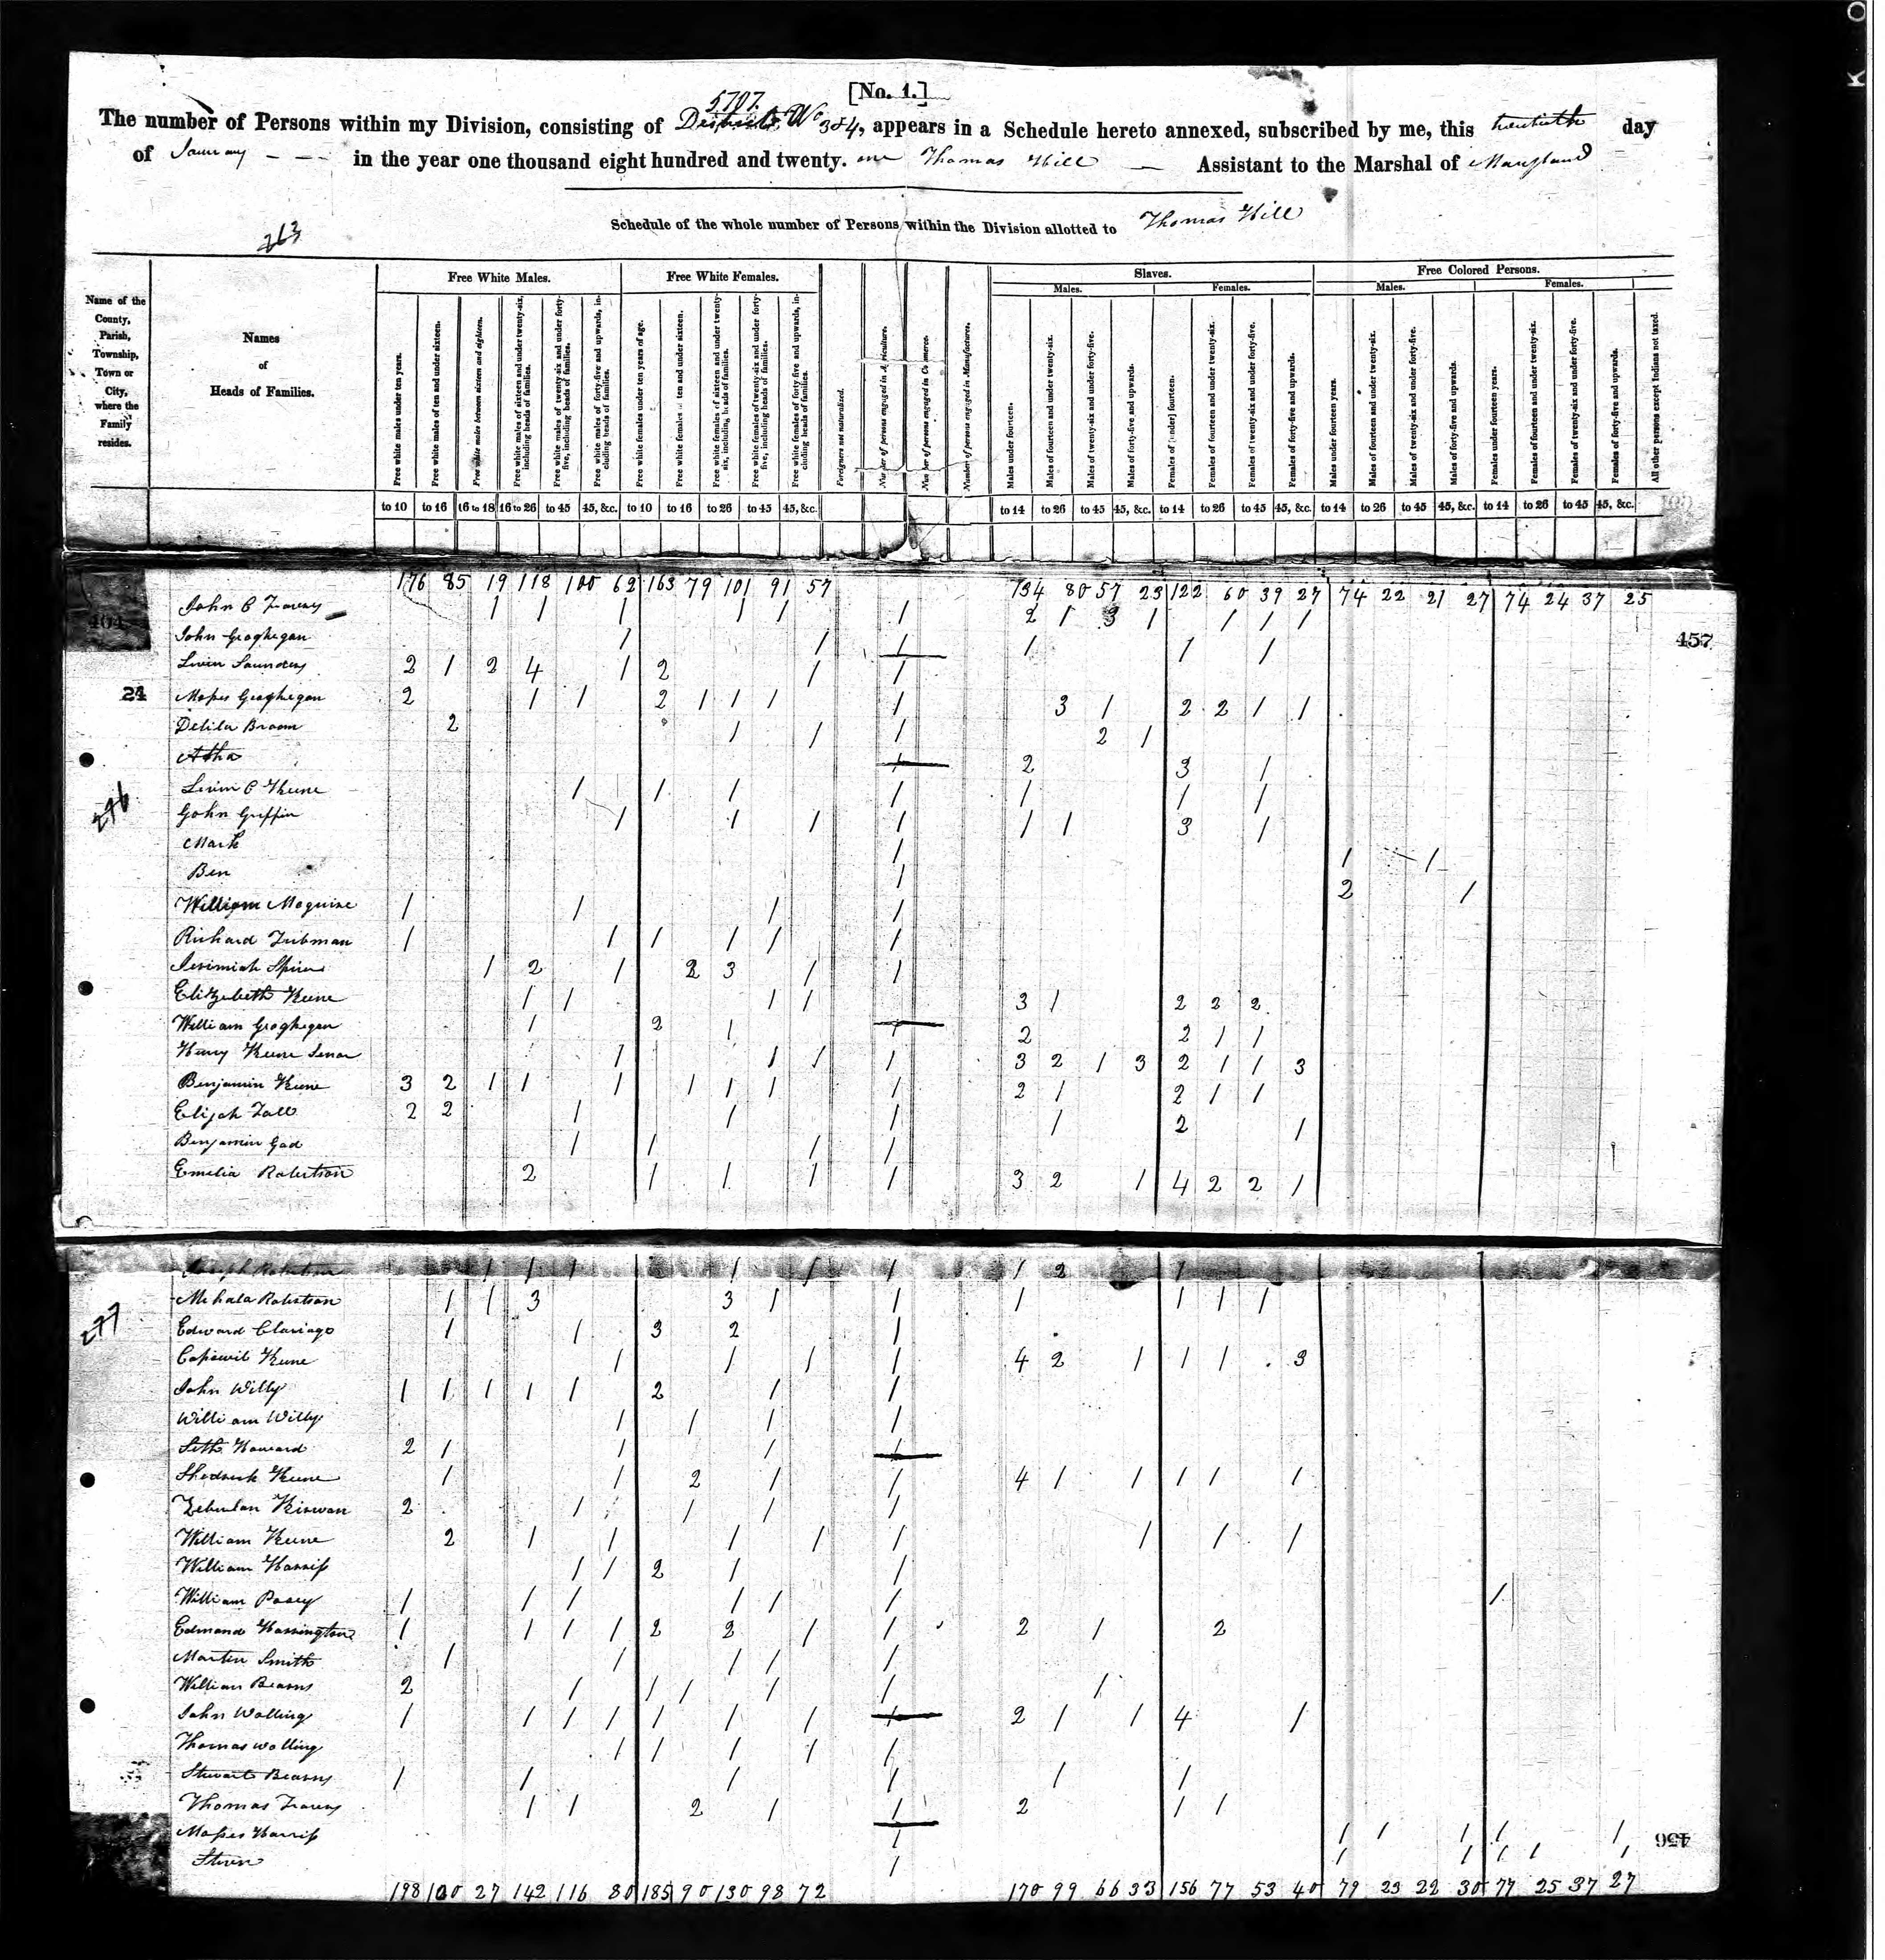 [No. 1.]
5707.
The number of Persons within my Division, consisting of Districts No 3 & 4, appears in a Schedule hereto annexed, subscribed by me, this twentieth day
of January - - - in the year one thousand eight hundred and twenty. one Thomas Hill — Assistant to the Marshal of Maryland
Schedule of the whole number of Persons within the Division allotted to Thomas Hill
263
Name of the County, Parish, Township, Town or City, where the Family resides.
Names of Heads of Families.
Free White Males. Free White Females. Slaves. Free Colored Persons.
Males. Females. Males. Females.
Free white males under ten years.
Free white males of ten and under sixteen.
Free white males between sixteen and eighteen.
Free white males of sixteen and under twenty-six, including heads of families.
Free white males of twenty-six and under forty-five, including heads of families.
Free white males of forty-five and upwards, including heads of families.
Free white females under ten years of age.
Free white females of ten and under sixteen.
Free white females of sixteen and under twenty-six, including heads of families.
Free white females of twenty-six and under forty-five, including heads of families.
Free white females of forty-five and upwards, including heads of families.
Foreigners not naturalized.
Number of persons engaged in Agriculture.
Number of persons engaged in Commerce.
Number of persons engaged in Manufactures.
Males under fourteen.
Males of fourteen and under twenty-six.
Males of twenty-six and under forty-five.
Males of forty-five and upwards.
Females of [under] fourteen.
Females of fourteen and under twenty-six.
Females of twenty-six and under forty-five.
Females of forty-five and upwards.
Males under fourteen years.
Males of fourteen and under twenty-six.
Males of twenty-six and under forty-five.
Males of forty-five and upwards.
Females under fourteen years.
Females of fourteen and under twenty-six.
Females of twenty-six and under forty-five.
Females of forty-five and upwards.
All other persons except Indians not taxed.
to 10 to 16 16 to 18 16 to 26 to 45 45, &c. to 10 to 16 to 26 to 45 45, &c. to 14 to 26 to 45 45, &c. to 14 to 26 to 45 45, &c. to 14 to 26 to 45 45, &c. to 14 to 26 to 45 45, &c.
176 85 19 118 100 62 163 79 101 91 57 134 80 57 23 122 60 39 27 74 22 21 27 74 24 37 25
John C Travers 1 1 1 1 1 1 2 1 3 1 1 1 1
457
John Geoghegan 1 1 1 1 1 1
Levin Saunders 2 1 2 4 1 2 1 1
24 Moses Geoghegan 2 1 1 2 1 1 1 1 3 1 2 2 1 1
Delila Broom 2 1 1 1 2 1
2 3 1
276
Levin C Keene 1 1 1 1 1 1 1
John Griffin 1 1 1 1 1 1 3 1
Mark 1 1 1
Ben 1 2 1
William Maguire 1 1 1 1
Richard Tubman 1 1 1 1 1 1
Jerimiah Spicer 1 2 1 2 3 1 1
Elizabeth Keene 1 1 1 1 3 1 2 2 2
William Geoghegan 1 2 1 1 2 2 1 1
Henry Keene Senor 1 1 1 1 3 2 1 3 2 1 1 3
Benjamin Keene 3 2 1 1 1 1 1 1 1 2 1 2 1 1
Elijah Tall 2 2 1 1 1 1 2 1
Benjamin Gad 1 1 1 1
Emelia Robertson 2 1 1 1 1 3 2 1 4 2 2 1
277
Mehala Robertson 1 1 3 3 1 1 1 1 1 1
Edward 1 1 3 2 1
Keene 1 1 1 1 4 2 1 1 1 3
John Willy 1 1 1 1 1 2 1 1
William Willy 1 1 1 1
Seth Howard 2 1 1 1 1
Shedrick Keene 1 1 2 1 1 4 1 1 1 1 1
Zebulon Kirwan 2 1 1 1 1
William Keene 2 1 1 1 1 1 1 1 1
William Harriss 1 1 2 1 1
William Pasey 1 1 1 1 1 1 1
Edmond Harrington 1 1 1 1 2 2 1 1 2 1 2
Martin Smith 1 1 1 1 1
William Bearns 2 1 1 1 1 1 1
John Walling 1 1 1 1 1 1 1 1 2 1 1 4 1
Thomas Walling 1 1 1 1 1
Stewart Bearns 1 1 1 1 1 1
Thomas Travers 1 1 2 1 1 2 1 1
Moses Harriss 1 1 1 1 1 1
456
Steven 1 1 1 1 1 1
198 100 27 142 116 80 185 90 130 98 72 170 99 66 33 156 77 53 40 79 23 22 30 77 25 37 27